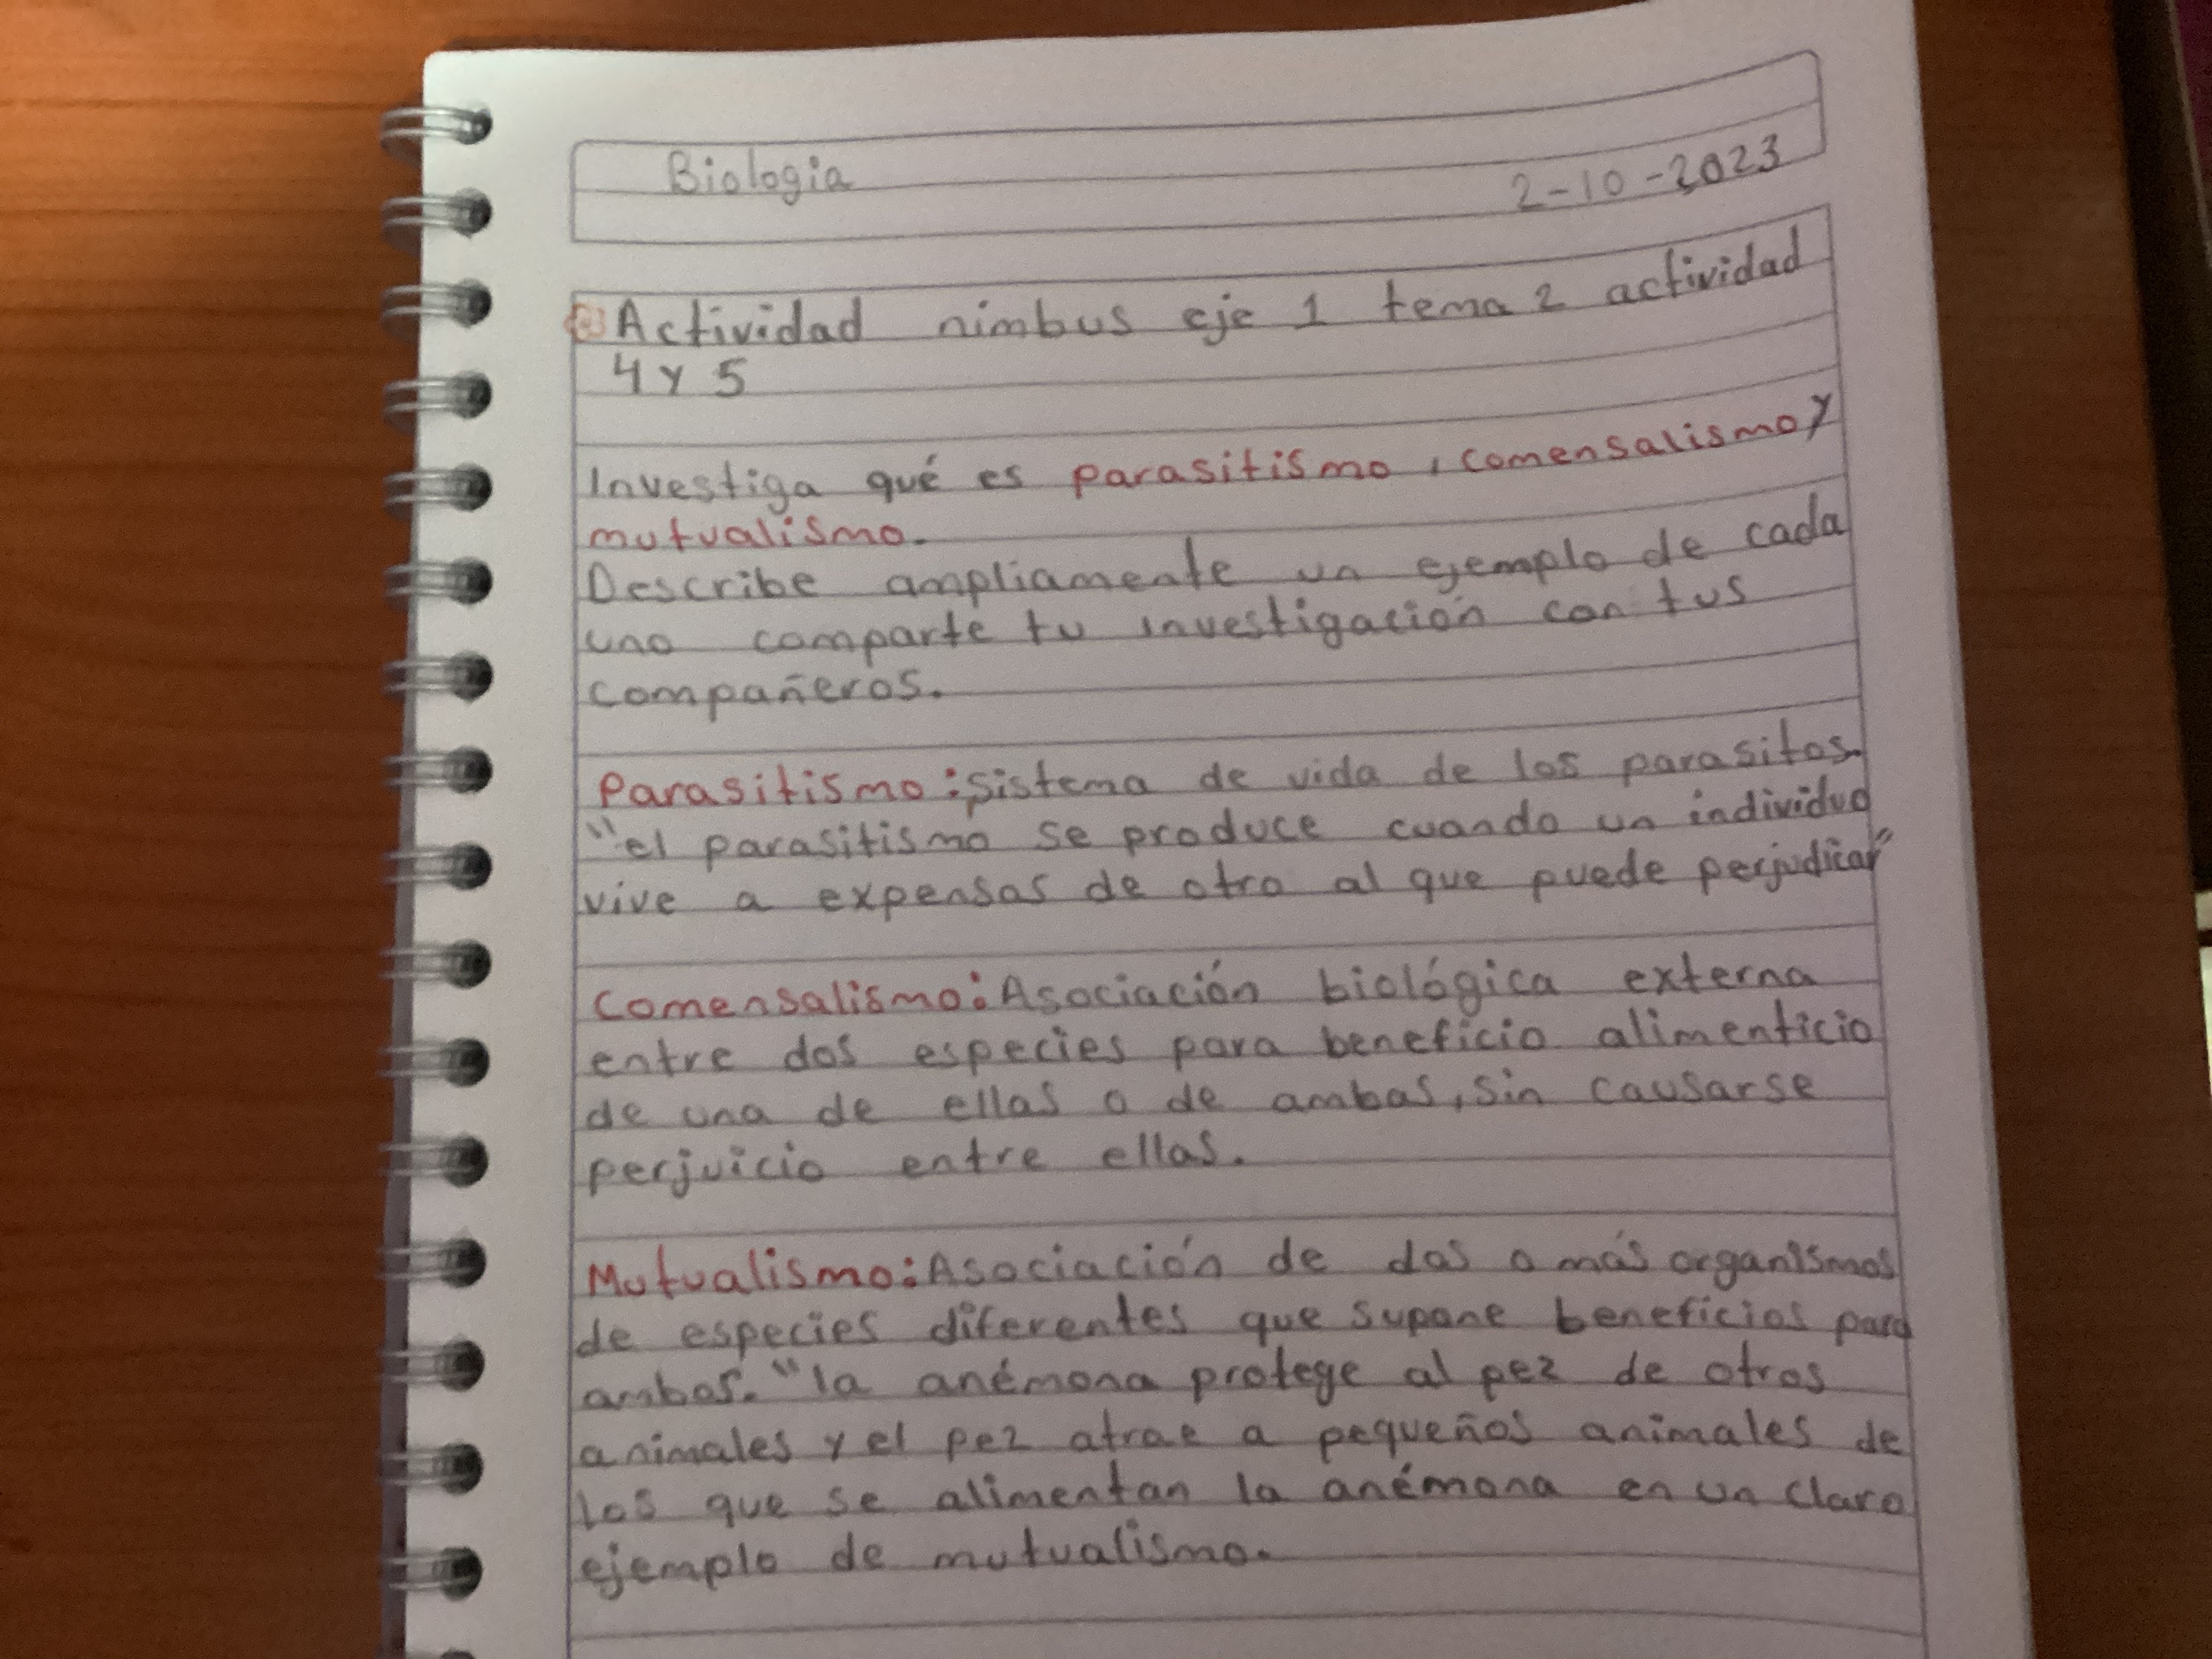 Biologia
2-10-2023
Actividad nimbus eje 1 tema 2 actividad
4 y 5
Investiga qué es parasitismo, comensalismo y
mutualismo.
Describe ampliamente un ejemplo de cada
uno comparte tu investigación con tus
compañeros.
Parasitismo: Sistema de vida de los parasitos.
"el parasitismo se produce cuando un individuo
vive a expensas de otro al que puede perjudicar"
Comensalismo: Asociación biológica externa
entre dos especies para beneficio alimenticio
de una de ellas o de ambas, sin causarse
perjuicio entre ellas.
Mutualismo: Asociación de dos o más organismos
de especies diferentes que supone beneficios para
ambos. "la anémona protege al pez de otros
animales y el pez atrae a pequeños animales de
los que se alimentan la anémona en un claro
ejemplo de mutualismo.